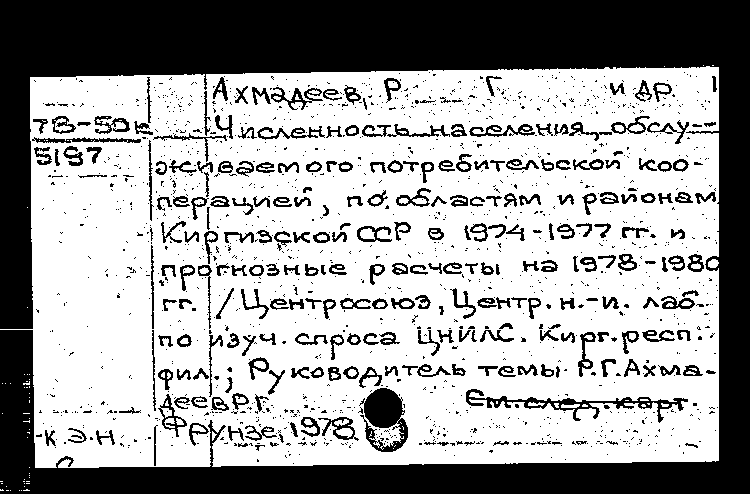 Ахмадеев, Р. Г. и др. 1
78-50к Численность населения, обслу-
5187 живаемого потребительской коо-
перацией, по областям и районам
Киргизской ССР в 1974-1977 гг. и
прогнозные расчеты на 1978-1980
гг. / Центросоюз, Центр. н.-и. лаб.
по изуч. спроса ЦНИЛС. Кирг. респ.
фил.; Руководитель темы Р.Г. Ахма-
деев Р.Г. См. след. карт.
к.э.н. Фрунзе, 1978.